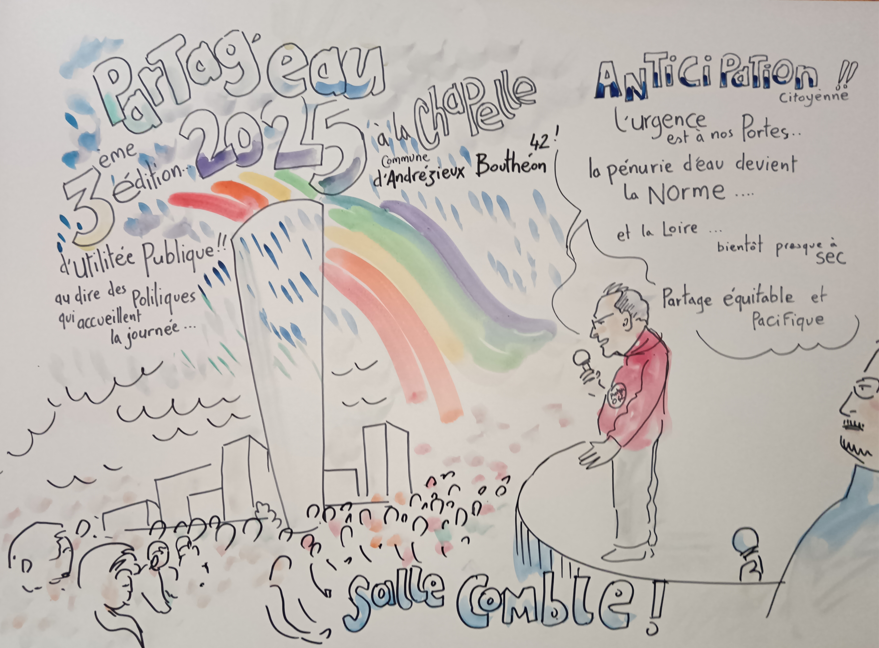 Partag'eau
2025
3ème
édition..
à la Chapelle
Commune
d'Andrézieux Bouthéon
42!
d'Utilitée Publique!!
au dire des Politiques
qui accueillent
la journée...
ANTiCiPATiON !!
Citoyenne
L'urgence
est à nos Portes..
la pénurie d'eau devient
la NORME ....
et la Loire ...
bientôt presque à
SEC
Partage équitable et
PaciFique
Salle Comble !